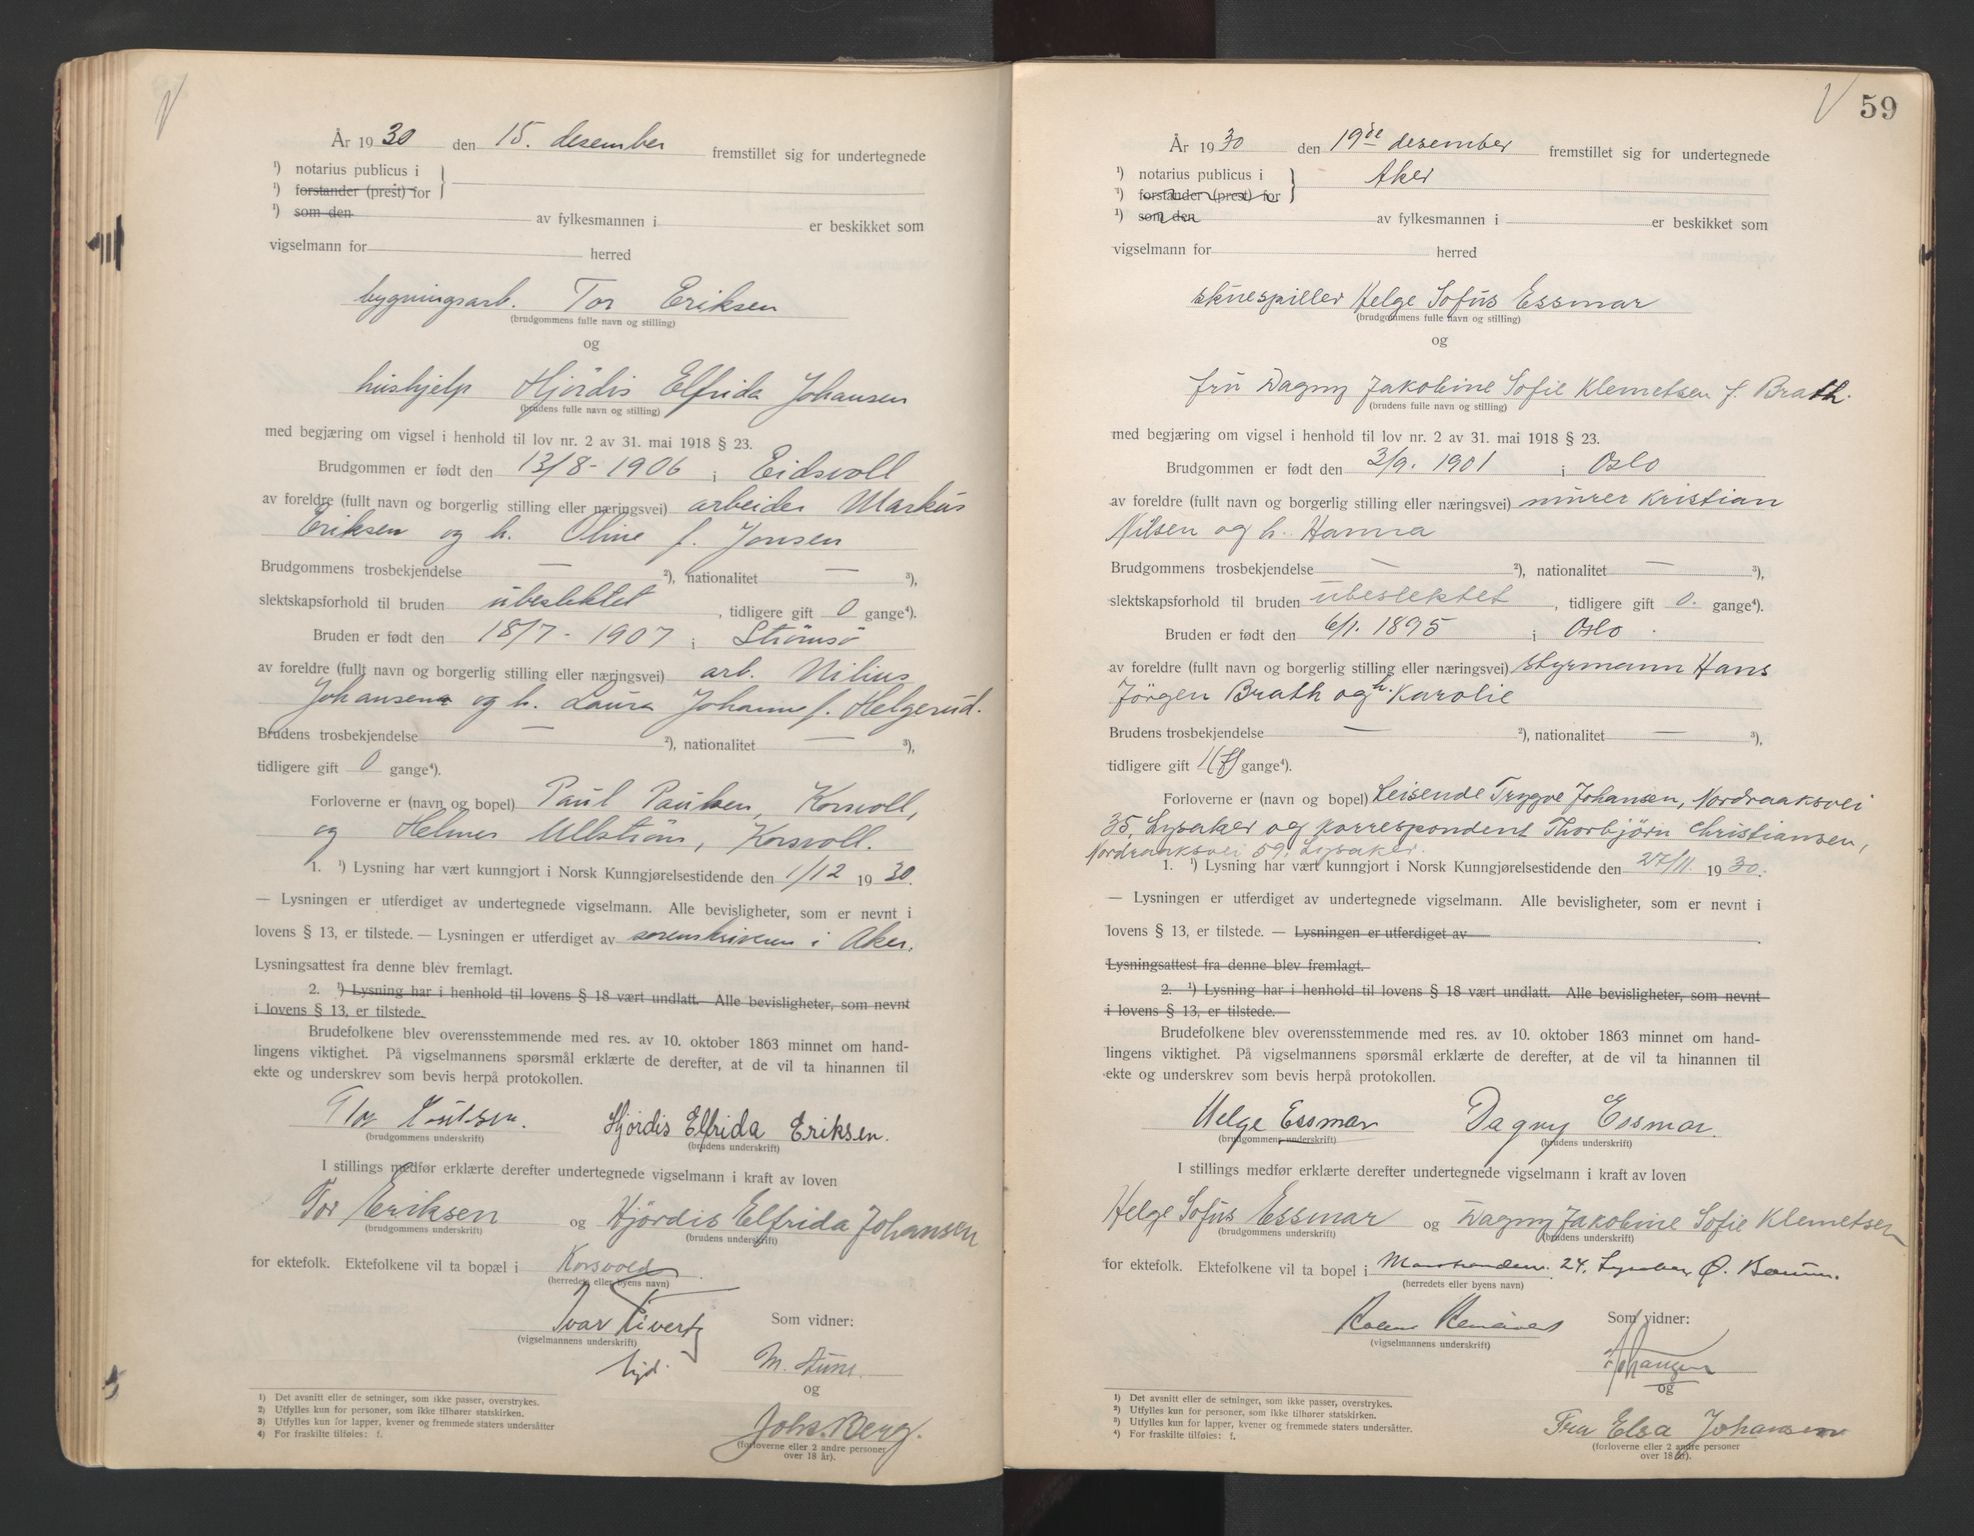 År 1930 den 15. desember fremstillet sig for undertegnede
¹) notarius publicus i
¹) forstander (prest) for
¹) som den av fylkesmannen i er beskikket som
vigselmann for herred
bygningsarb. Tor Eriksen
(brudgommens fulle navn og stilling)
og
hushjelp Hjördis Elfrida Johansen
(brudens fulle navn og stilling)
med begjæring om vigsel i henhold til lov nr. 2 av 31. mai 1918 § 23.
Brudgommen er født den 13/8 - 1906 i Eidsvoll
av foreldre (fullt navn og borgerlig stilling eller næringsvei) arbeider Markus
Eriksen og h. Oline f. Jonsen
Brudgommens trosbekjendelse — ²), nationalitet — ³),
slektskapsforhold til bruden ubeslektet, tidligere gift 0 gange⁴).
Bruden er født den 18/7 - 1907 i Strömsö
av foreldre (fullt navn og borgerlig stilling eller næringsvei) arb. Nilius
Johansen og h. Laura Johanne f. Helgerud.
Brudens trosbekjendelse — ²), nationalitet — ³),
tidligere gift 0 gange⁴).
Forloverne er (navn og bopel) Paul Paulsen, Korsvoll,
og Helmer Ullström, Korsvoll.
1. ¹) Lysning har vært kunngjort i Norsk Kunngjørelsestidende den 1/12 1930.
— Lysningen er utferdiget av undertegnede vigselmann. Alle bevisligheter, som er nevnt i
lovens § 13, er tilstede. — Lysningen er utferdiget av sorenskriveren i Aker.
Lysningsattest fra denne blev fremlagt.
2. ¹) Lysning har i henhold til lovens § 18 vært undlatt. Alle bevisligheter, som nevnt
i lovens § 13, er tilstede.
Brudefolkene blev overensstemmende med res. av 10. oktober 1863 minnet om hand-
lingens viktighet. På vigselmannens spørsmål erklærte de derefter, at de vil ta hinannen til
ekte og underskrev som bevis herpå protokollen.
Tor Eriksen. Hjördis Elfrida Eriksen.
(brudgommens underskrift) (brudens underskrift)
I stillings medfør erklærte derefter undertegnede vigselmann i kraft av loven
Tor Eriksen og Hjördis Elfrida Johansen
(brudgommens underskrift) (brudens underskrift)
for ektefolk. Ektefolkene vil ta bopæl i Korsvoll
(herredets eller byens navn)
Ivar Sivertz Som vidner:
(vigselmannens underskrift)
M.
og
Johs. Berg.
(forloverne eller 2 andre personer
over 18 år).
1) Det avsnitt eller de setninger, som ikke passer, overstrykes.
2) Utfylles kun for personer, som ikke tilhører statskirken.
3) Utfylles kun for lapper, kvener og fremmede staters undersåtter
4) For fraskilte tilføies: f.
59
År 1930 den 19de desember fremstillet sig for undertegnede
¹) notarius publicus i Aker
¹) forstander (prest) for
¹) som den av fylkesmannen i er beskikket som
vigselmann for herred
skuespiller Helge Sofus Essmar
(brudgommens fulle navn og stilling)
og
fru Dagny Jakobine Sofie Klemetsen f. Brath.
(brudens fulle navn og stilling)
med begjæring om vigsel i henhold til lov nr. 2 av 31. mai 1918 § 23.
Brudgommen er født den 3/9. 1901 i Oslo
av foreldre (fullt navn og borgerlig stilling eller næringsvei) murer Kristian
Nilsen og h. Hanna
Brudgommens trosbekjendelse — ²), nationalitet — ³),
slektskapsforhold til bruden ubeslektet, tidligere gift 0. gange⁴).
Bruden er født den 6/1. 1895 i Oslo.
av foreldre (fullt navn og borgerlig stilling eller næringsvei) styrmann Hans
Jörgen Brath og h. Karolie
Brudens trosbekjendelse — ²), nationalitet — ³),
tidligere gift 1(f) gange⁴).
Forloverne er (navn og bopel) Reisende Trygve Johansen, Nordraaksvei
35, Lysaker og korrespondent Thorbjörn Christiansen,
Nordraaksvei 59, Lysaker.
1. ¹) Lysning har vært kunngjort i Norsk Kunngjørelsestidende den 27/11. 1930.
— Lysningen er utferdiget av undertegnede vigselmann. Alle bevisligheter, som er nevnt i
lovens § 13, er tilstede. — Lysningen er utferdiget av
Lysningsattest fra denne blev fremlagt.
2. ¹) Lysning har i henhold til lovens § 18 vært undlatt. Alle bevisligheter, som nevnt
i lovens § 13, er tilstede.
Brudefolkene blev overensstemmende med res. av 10. oktober 1863 minnet om hand-
lingens viktighet. På vigselmannens spørsmål erklærte de derefter, at de vil ta hinannen til
ekte og underskrev som bevis herpå protokollen.
Helge Essmar Dagny Essmar.
(brudgommens underskrift) (brudens underskrift)
I stillings medfør erklærte derefter undertegnede vigselmann i kraft av loven
Helge Sofus Essmar og Dagny Jakobine Sofie Klemetsen
(brudgommens underskrift) (brudens underskrift)
for ektefolk. Ektefolkene vil ta bopel i 24. Lysaker, Ø. Bærum.
(herredets eller byens navn)
Som vidner:
(vigselmannens underskrift)
Johansen
og
Fru Elsa Johansen
(forloverne eller 2 andre personer
over 18 år).
¹) Det avsnitt eller de setninger, som ikke passer, overstrykes.
²) Utfylles kun for personer, som ikke tilhører statskirken.
³) Utfylles kun for lapper, kvener og fremmede staters undersåtter.
⁴) For fraskilte tilføies: f.